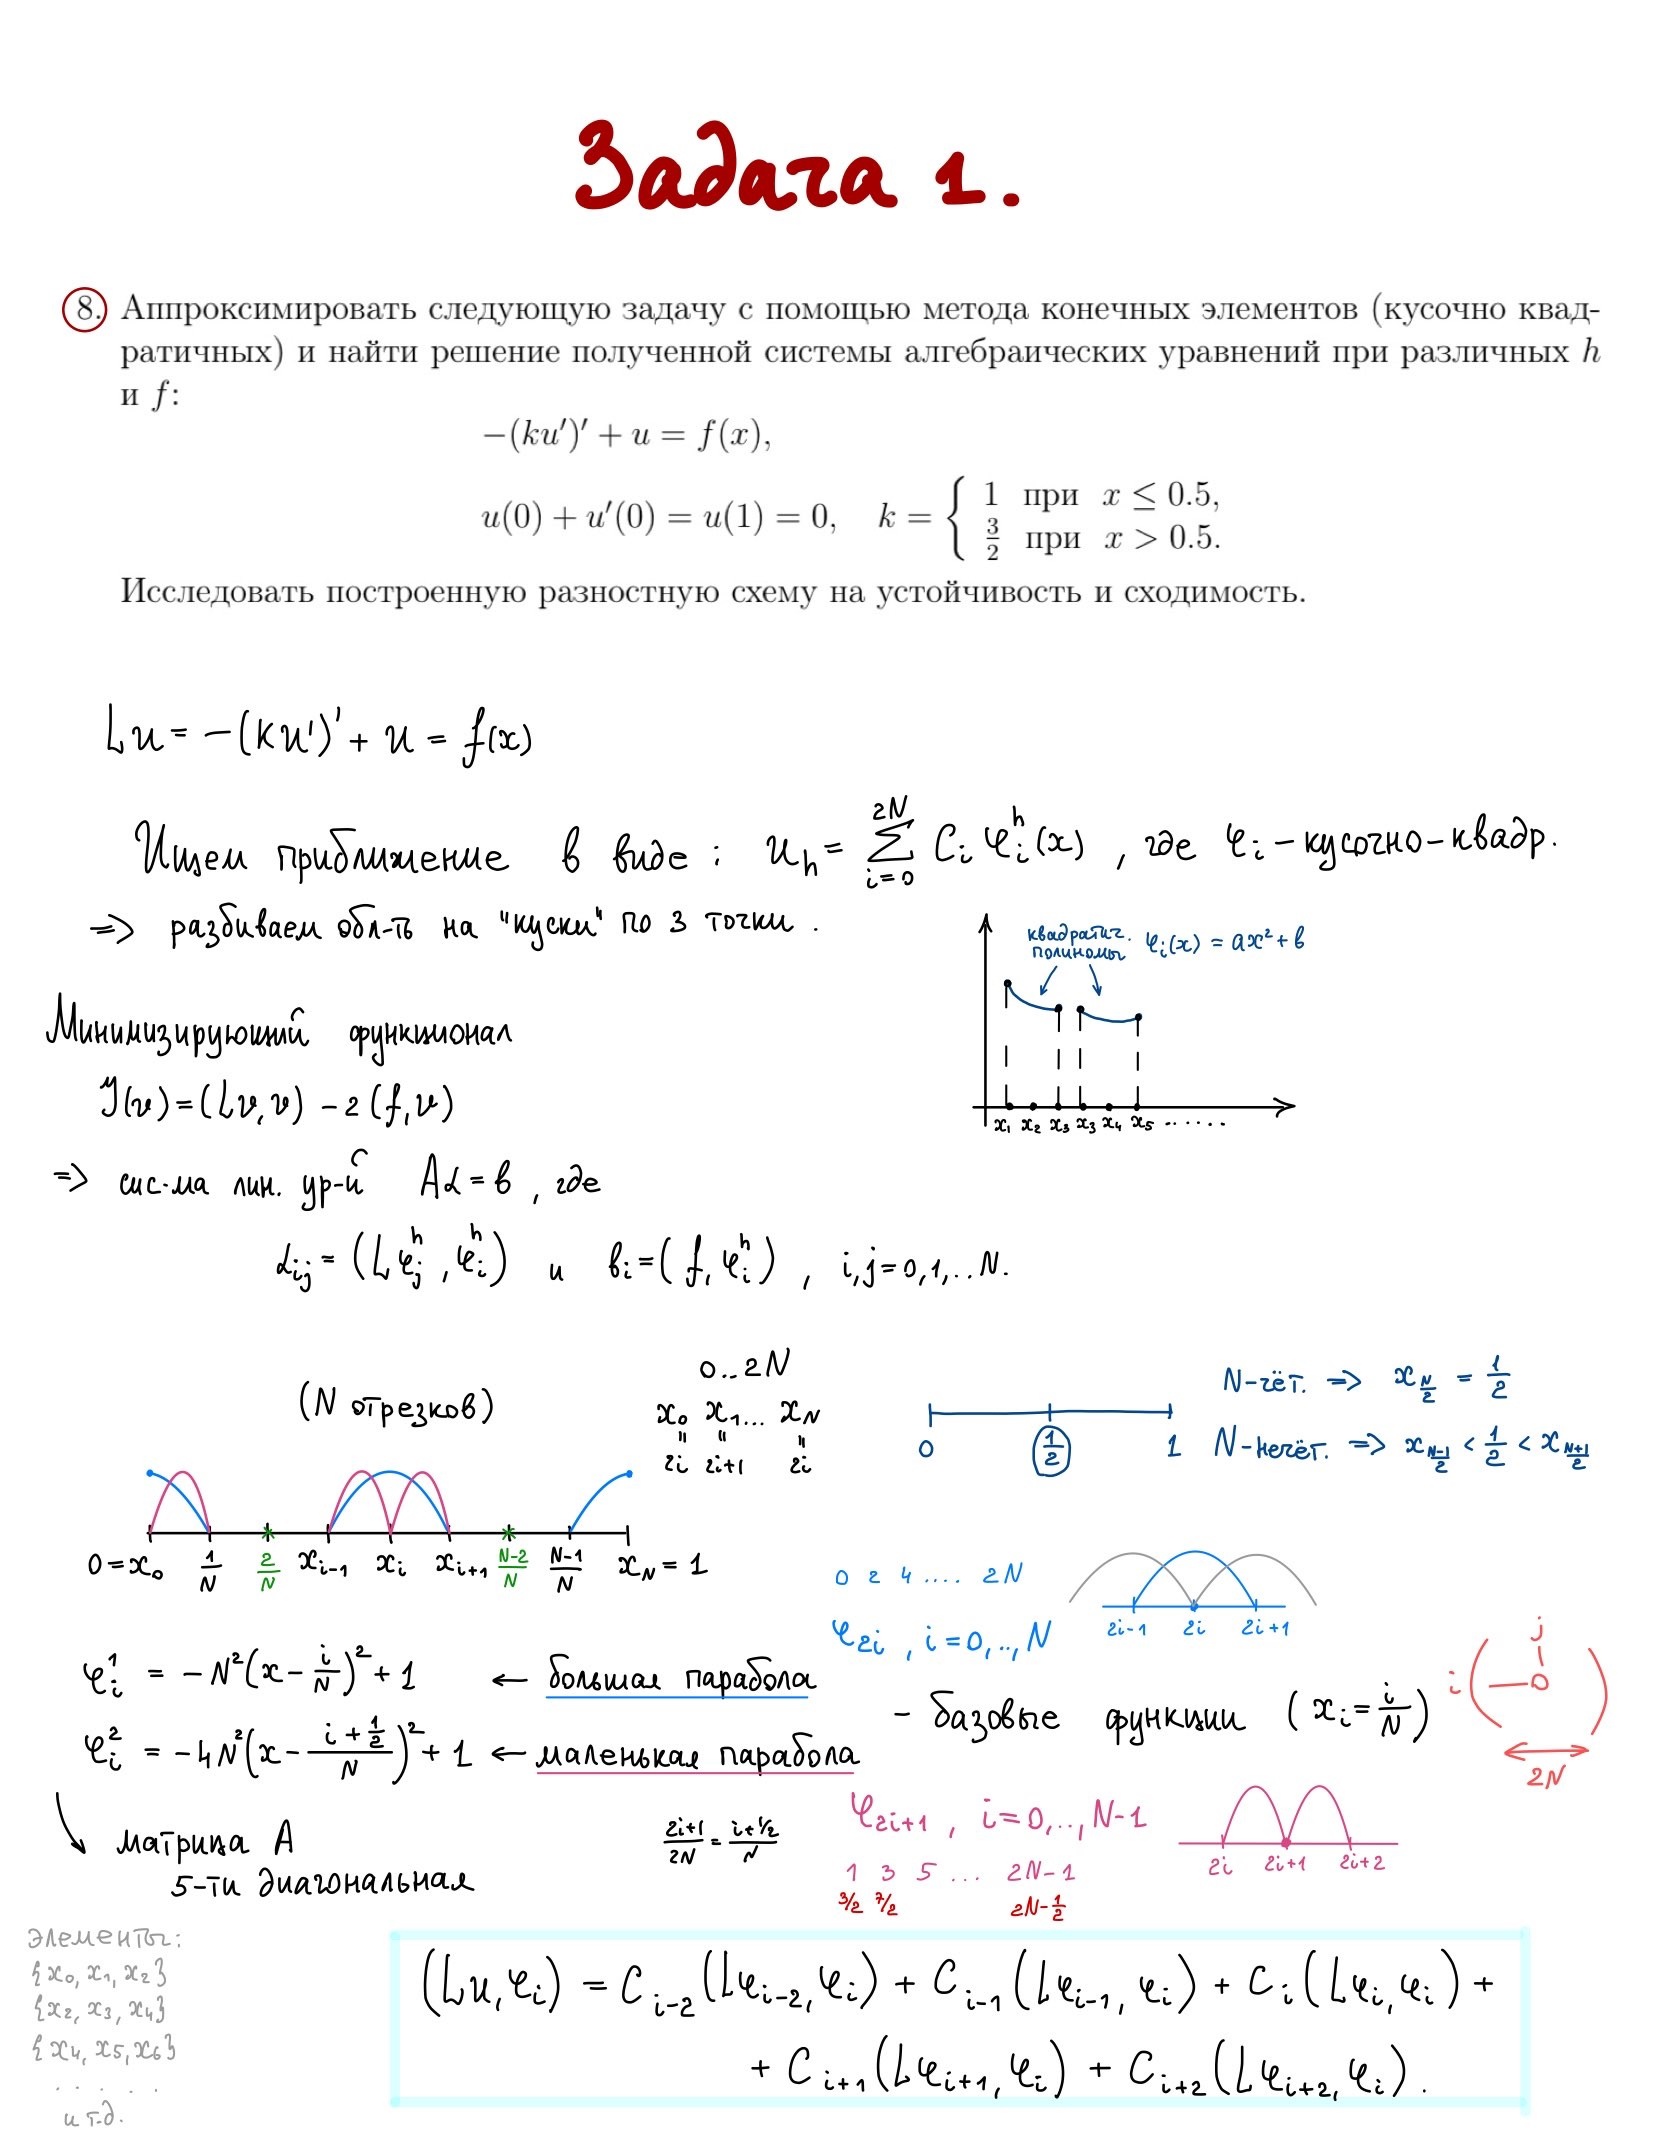 Задача 1.
8. Аппроксимировать следующую задачу с помощью метода конечных элементов (кусочно квад-
ратичных) и найти решение полученной системы алгебраических уравнений при различных h
и f:
−(ku′)′ + u = f(x),
u(0) + u′(0) = u(1) = 0, k = { 1 при x ≤ 0.5,
3/2 при x > 0.5.
Исследовать построенную разностную схему на устойчивость и сходимость.
Lu = −(ku')' + u = f(x)
Ищем приближение в виде : u_h = Σ_{i=0}^{2N} C_i φ_i^h(x) , где φ_i − кусочно-квадр.
=> разбиваем обл-ть на "куски" по 3 точки .
квадратич. полиномы φ_i(x) = ax² + b
x₁ x₂ x₃ x₃ x₄ x₅ ......
Минимизирующий функционал
J(v) = (Lv, v) − 2 (f, v)
=> сис-ма лин. ур-й Aα = b , где
α_ij = (Lφ_j^h , φ_i^h) и b_i = (f, φ_i^h) , i,j = 0,1,..N.
(N отрезков)
0..2N
x₀ x₁... x_N
" " "
2i 2i+1 2i
0 1/2 1
N-чёт. => x_{N/2} = 1/2
N-нечёт. => x_{(N-1)/2} < 1/2 < x_{(N+1)/2}
0 = x₀ 1/N 2/N x_{i-1} x_i x_{i+1} (N-2)/N (N-1)/N x_N = 1
0 2 4 .... 2N
φ_{2i} , i = 0,..,N
2i-1 2i 2i+1
φ_i^1 = −N²(x − i/N)² + 1 ← большая парабола
φ_i^2 = −4N²(x − (i + 1/2)/N)² + 1 ← маленькая парабола
− базовые функции (x_i = i/N)
j
i (—0)
2N
φ_{2i+1} , i = 0,..,N−1
2i 2i+1 2i+2
1 3 5 ... 2N−1
3/2 7/2 2N−1/2
(2i+1)/2N = (i+1/2)/N
матрица A
5-ти диагональная
элементы:
{x₀, x₁, x₂}
{x₂, x₃, x₄}
{x₄, x₅, x₆}
. . . . .
и т.д.
(Lu, φ_i) = C_{i-2}(Lφ_{i-2}, φ_i) + C_{i-1}(Lφ_{i-1}, φ_i) + C_i(Lφ_i, φ_i) +
+ C_{i+1}(Lφ_{i+1}, φ_i) + C_{i+2}(Lφ_{i+2}, φ_i) .